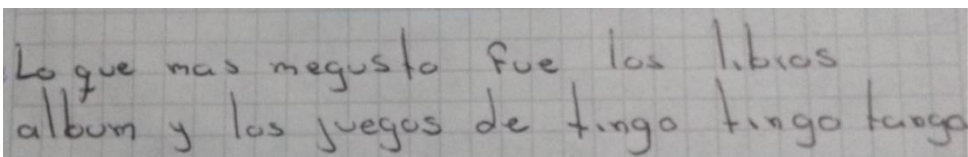 Lo que mas megusto fue los libros
album y los juegos de tingo tingo tango